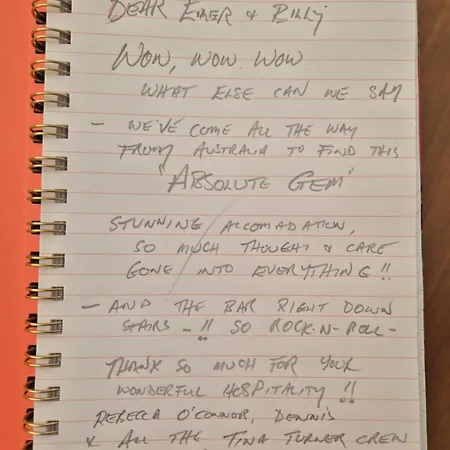 DEAR EIMER & BILLY
WOW, WOW. WOW.
WHAT ELSE CAN WE SAY
- WE'VE COME ALL THE WAY
FROM AUSTRALIA TO FIND THIS
"ABSOLUTE GEM"
STUNNING ACCOMADATION,
SO MUCH THOUGHT & CARE
GONE INTO EVERYTHING!!
- AND THE BAR RIGHT DOWN
STAIRS - !! SO ROCK-N-ROLL -
THANX SO MUCH FOR YOUR
WONDERFUL HOSPITALITY !!
REBECCA O'CONNOR, DENNIS
& ALL THE TINA TURNER CREW